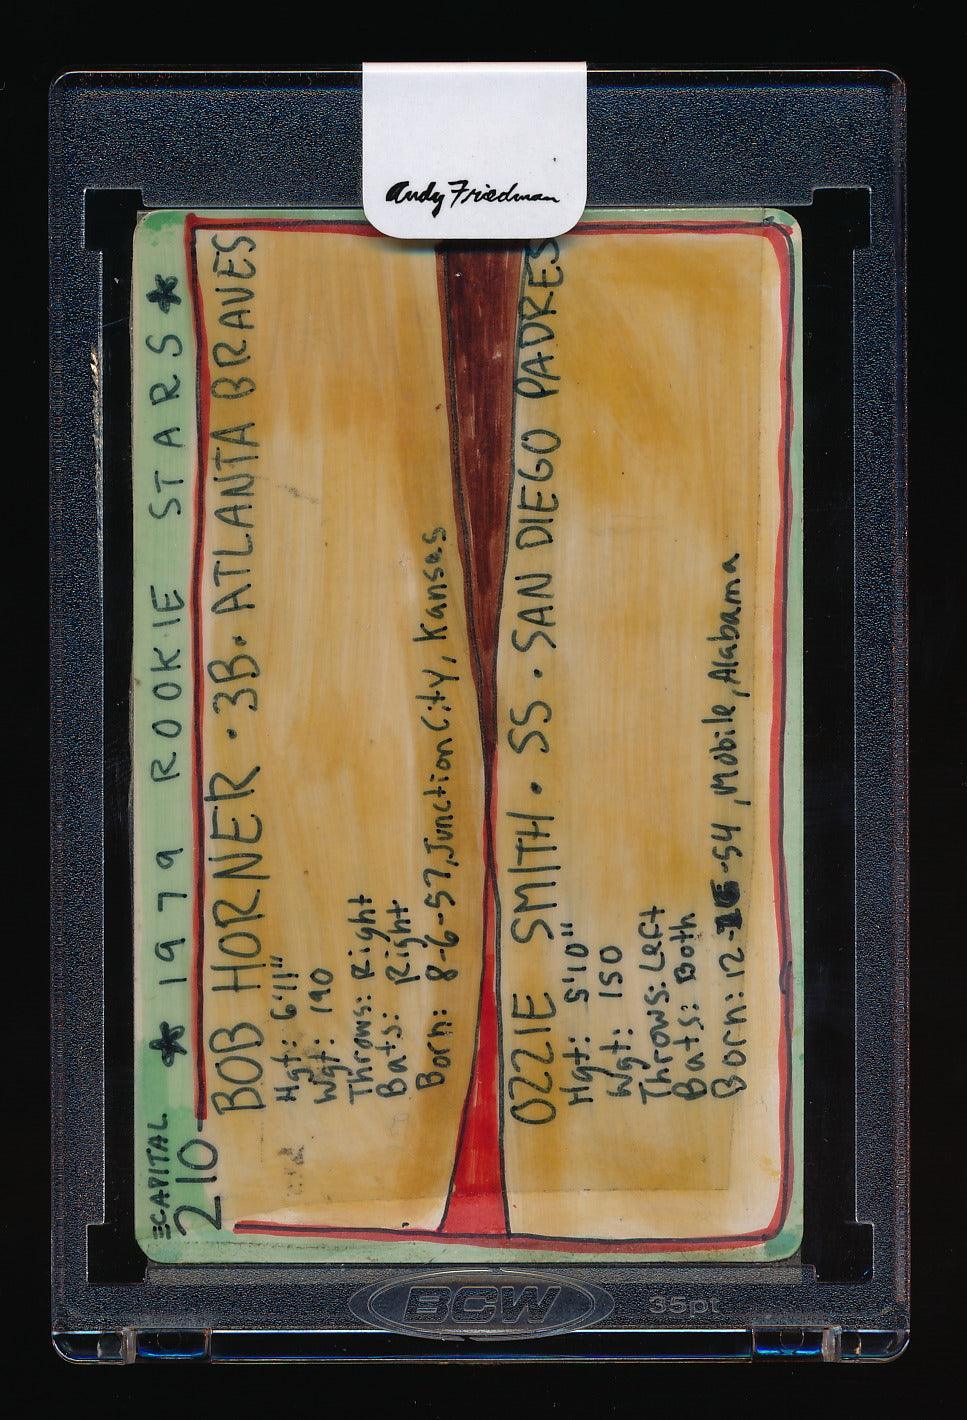 Andy Friedman
CAPITAL
* 1979 ROOKIE STARS *
210
BOB HORNER · 3B · ATLANTA BRAVES
Hgt: 6'11"
Wgt: 190
Throws: Right
Bats: Right
Born: 8-6-57, Junction City, Kansas
OZZIE SMITH · SS · SAN DIEGO PADRES
Hgt: 5'10"
Wgt: 150
Throws: Left
Bats: Both
Born: 12- -54, Mobile, Alabama
BCW
35pt